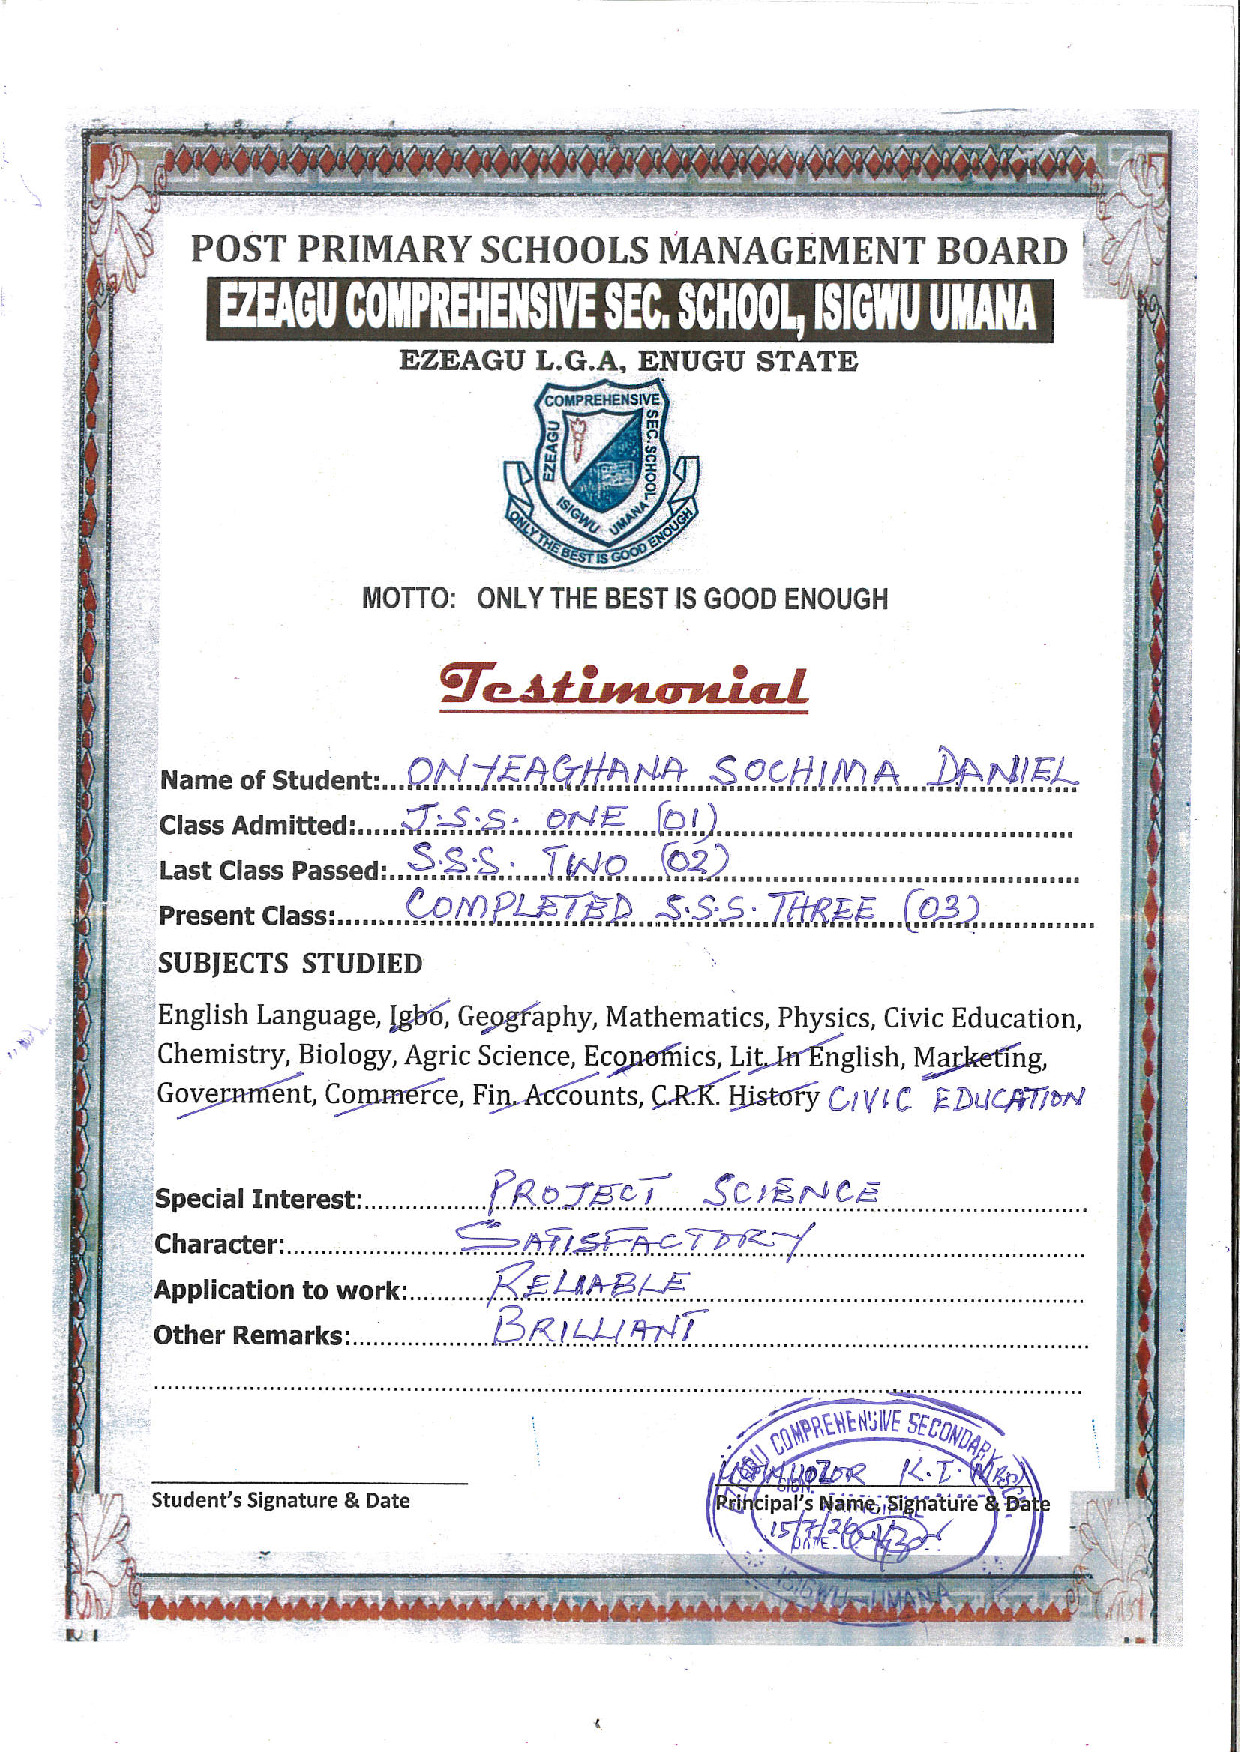 POST PRIMARY SCHOOLS MANAGEMENT BOARD
EZEAGU COMPREHENSIVE SEC. SCHOOL, ISIGWU UMANA
EZEAGU L.G.A, ENUGU STATE
EZEAGU COMPREHENSIVE SEC. SCHOOL
ISIGWU UMANA
ONLY THE BEST IS GOOD ENOUGH
MOTTO: ONLY THE BEST IS GOOD ENOUGH
Testimonial
Name of Student: ONYEAGHANA SOCHIMA DANIEL
Class Admitted: J.S.S. ONE (01)
Last Class Passed: S.S.S. TWO (02)
Present Class: COMPLETED S.S.S. THREE (03)
SUBJECTS STUDIED
English Language, Igbo, Geography, Mathematics, Physics, Civic Education,
Chemistry, Biology, Agric Science, Economics, Lit. In English, Marketing,
Government, Commerce, Fin. Accounts, C.R.K. History CIVIC EDUCATION
Special Interest: PROJECT SCIENCE
Character: SATISFACTORY
Application to work: RELIABLE
Other Remarks: BRILLIANT
EZEAGU COMPREHENSIVE SECONDARY
K.I.
Student's Signature & Date
Principal's Name, Signature & Date
SIGN
DATE
ISIGWU-UMANA